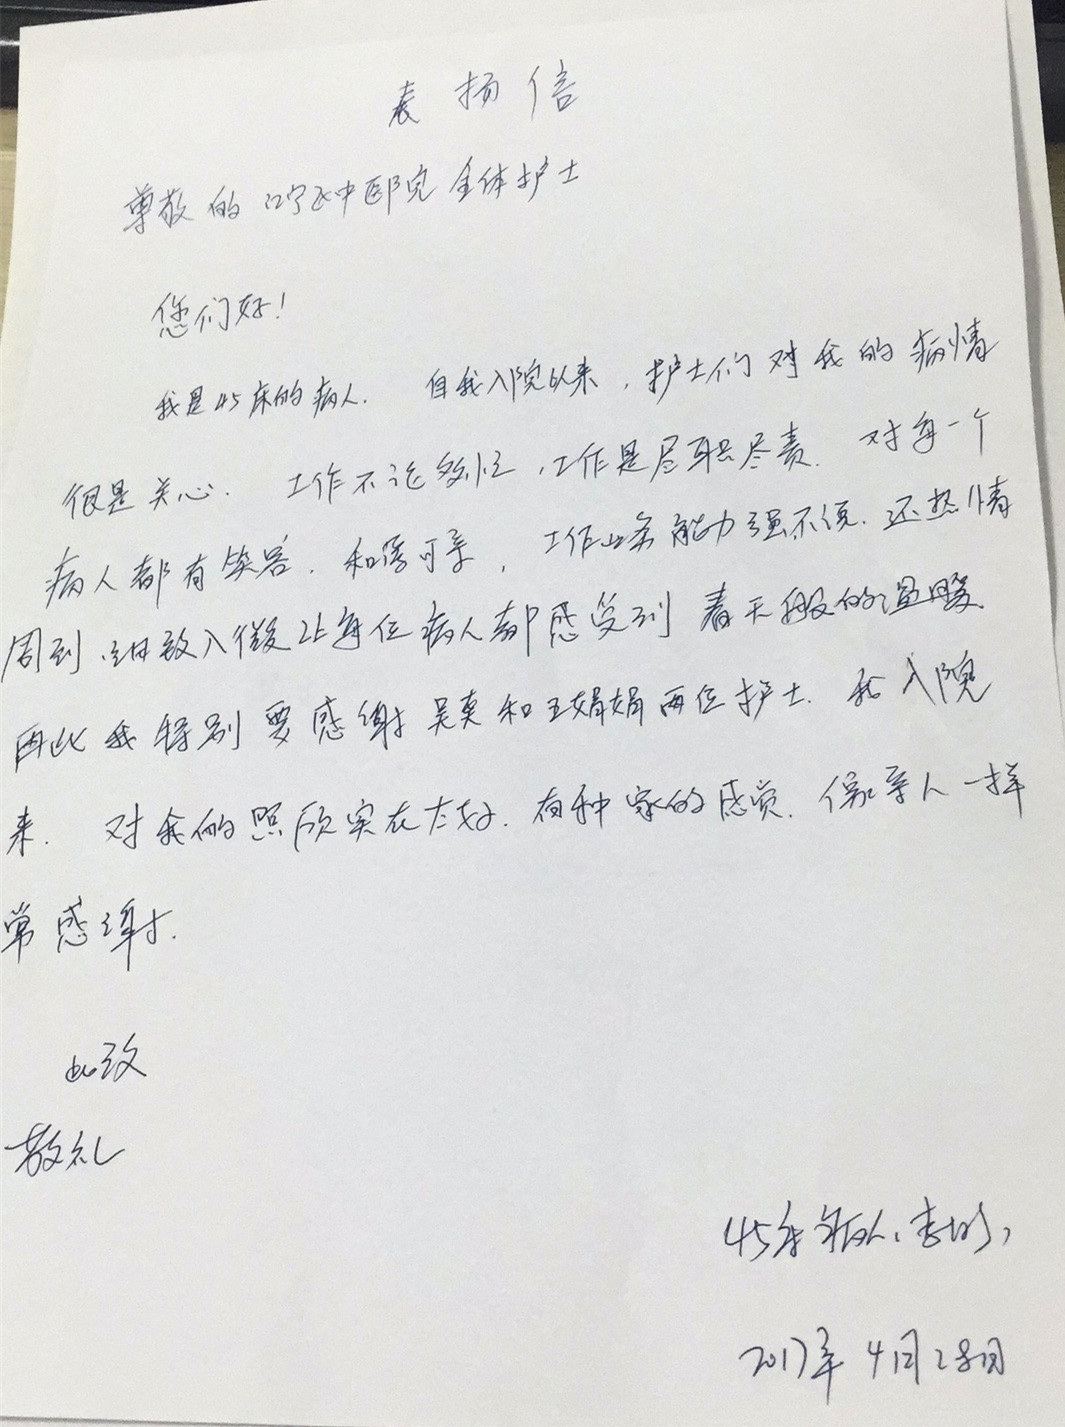 表扬信
尊敬的江宁区中医院全体护士
您们好！
我是45床的病人. 自我入院以来，护士们对我的病情
很是关心. 工作不论多忙，工作是尽职尽责. 对每一个
病人都有笑容. 和蔼可亲，工作业务能力强不说. 还热情
周到、细致入微让每位病人都感受到春天般的温暖
因此我特别要感谢吴爽和王娟娟两位护士. 我入院
来. 对我的照顾实在太好. 有种家的感觉. 像亲人一样
常感谢.
此致
敬礼
45床病人、李
2017年4月28日